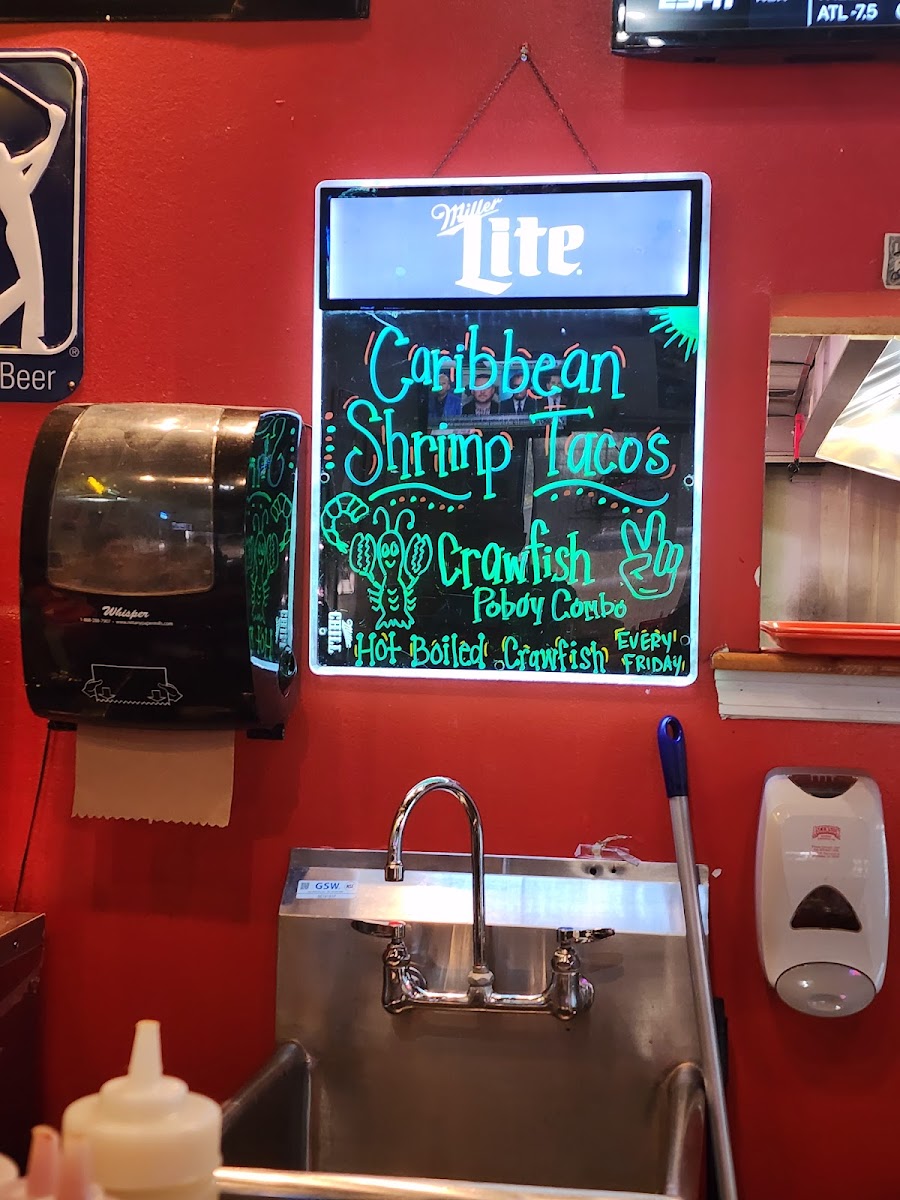 ESPN
ATL -7.5
Miller
Lite
Caribbean
Shrimp Tacos
Crawfish
Poboy Combo
Hot Boiled Crawfish EVERY
FRIDAY
Beer
Whisper
GSW